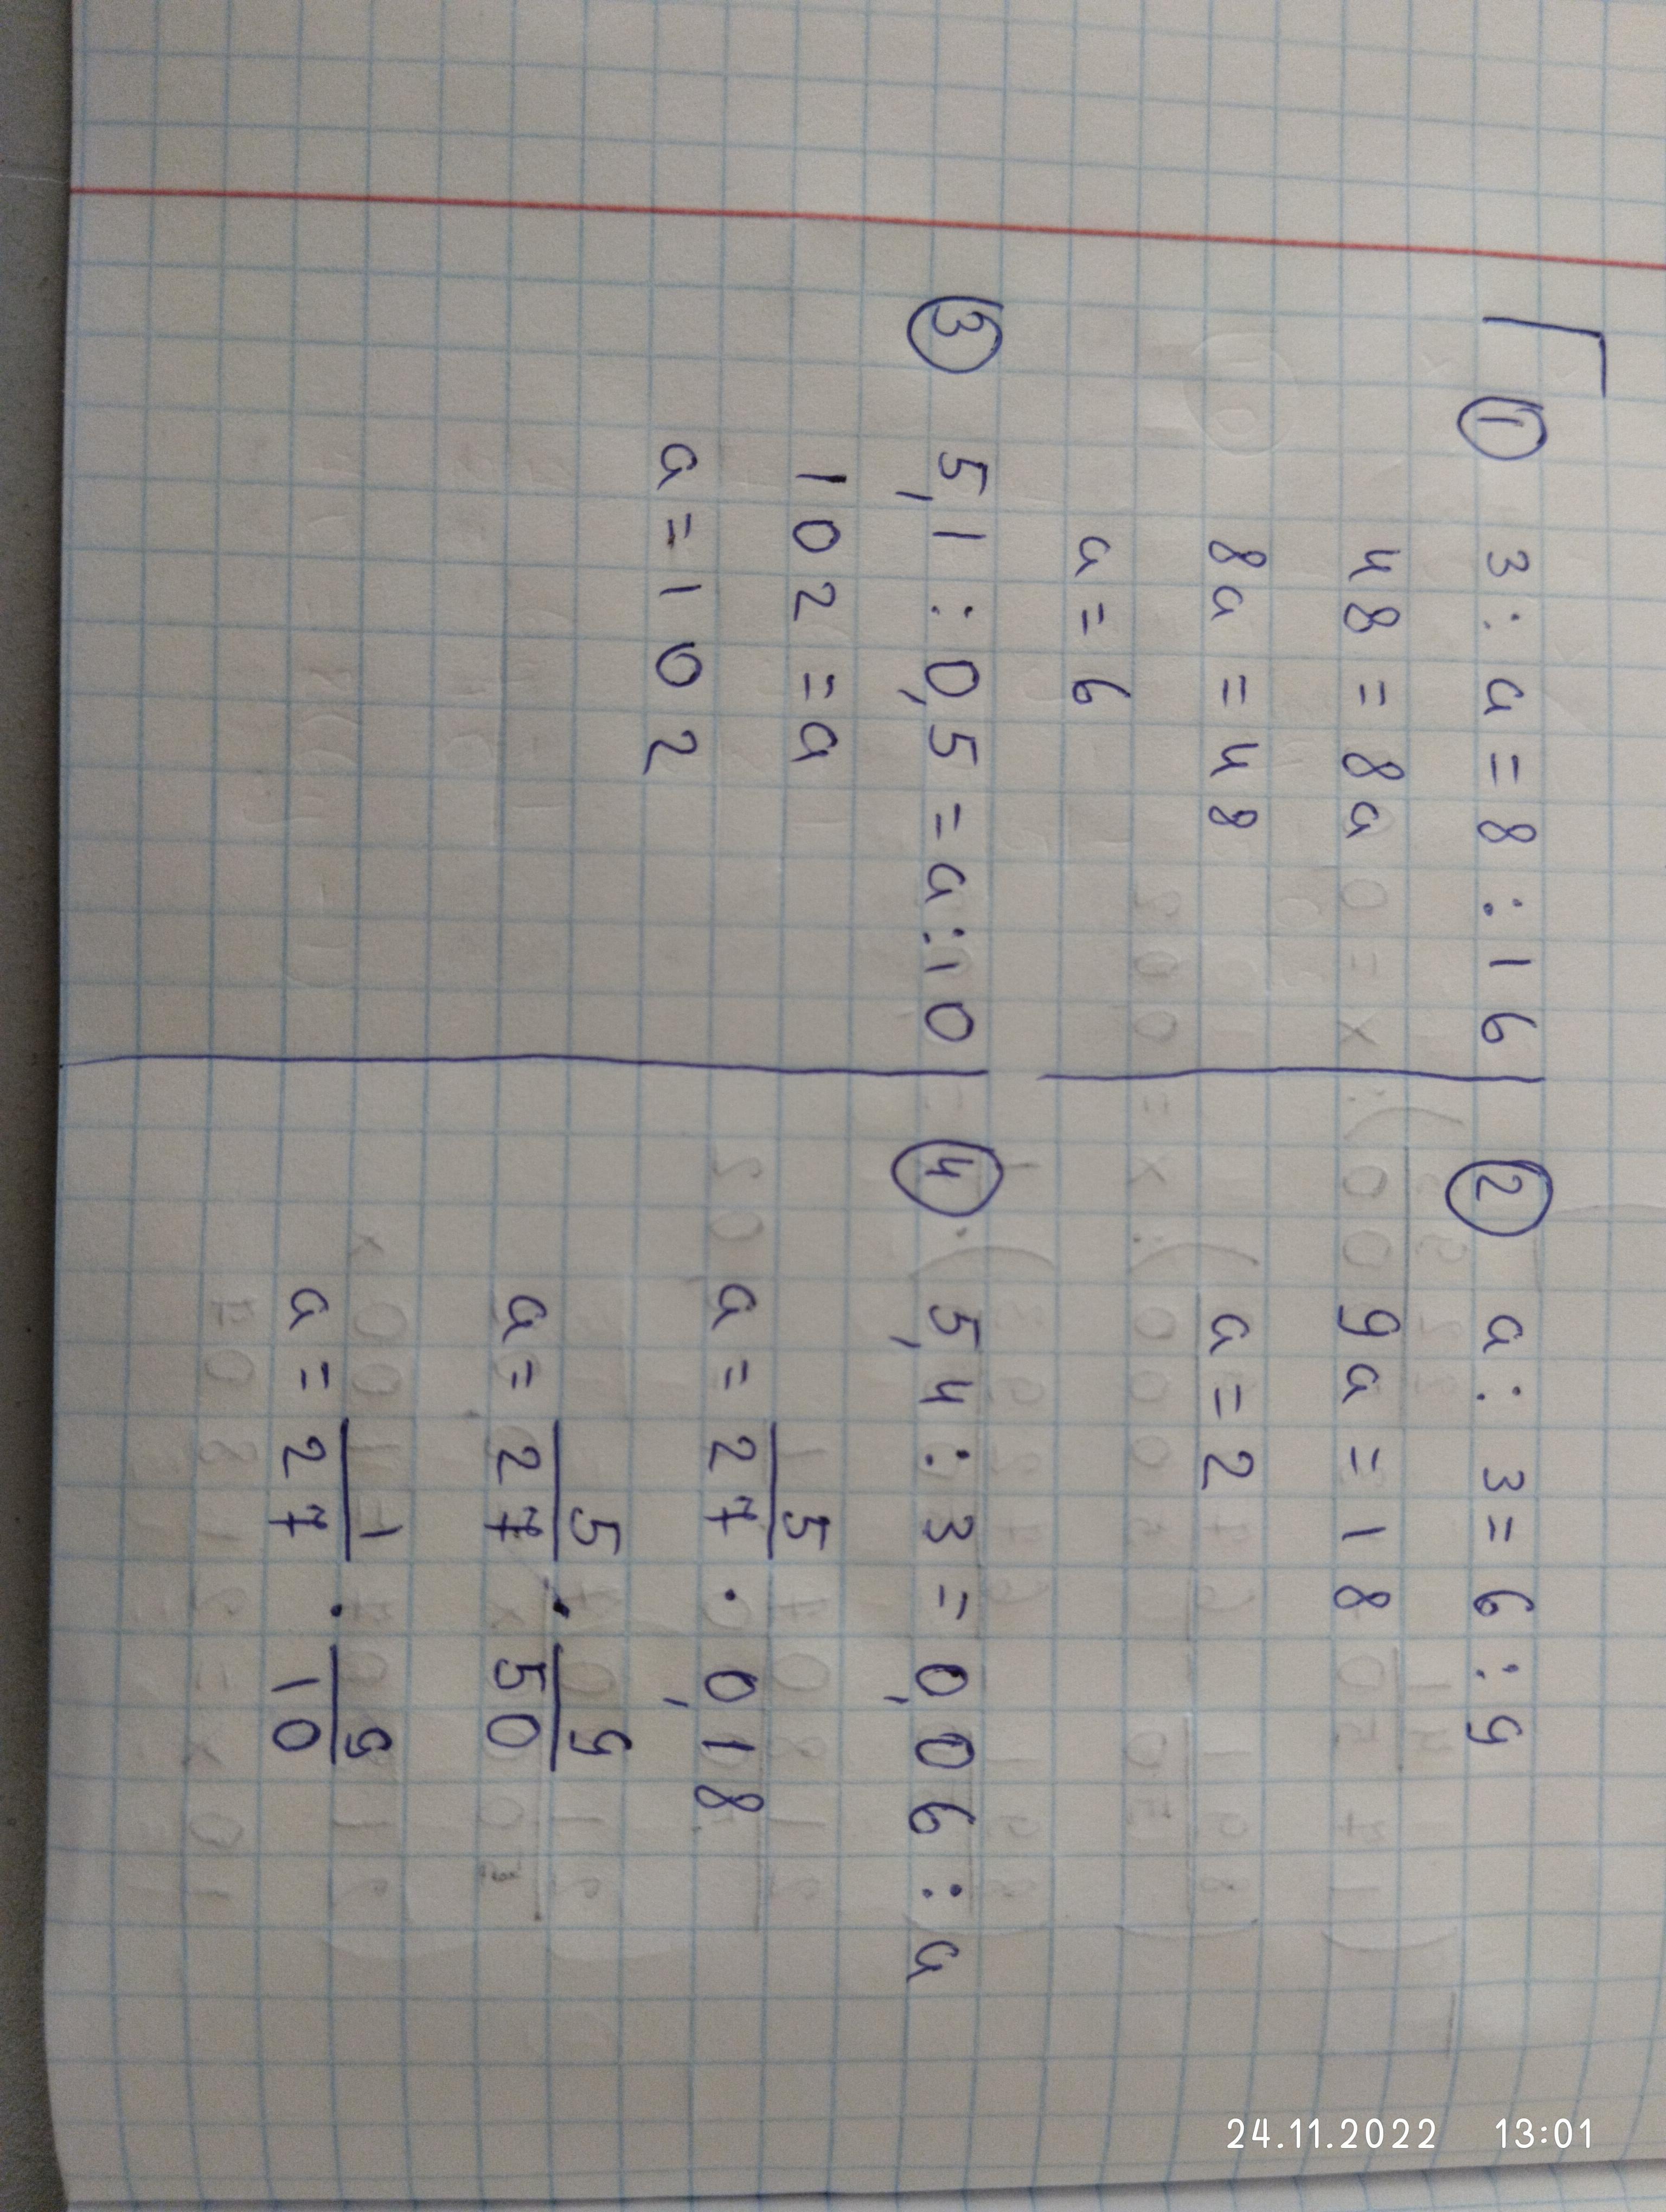 ① 3 : a = 8 : 16
48 = 8a
8a = 48
a = 6
② a : 3 = 6 : 9
9a = 18
a = 2
③ 5,1 : 0,5 = a : 10
102 = a
a = 102
④ 5,4 : 3 = 0,06 : a
a = 5/27 · 0,18
a = 5/27 · 9/50
a = 1/27 · 9/10
24.11.2022 13:01